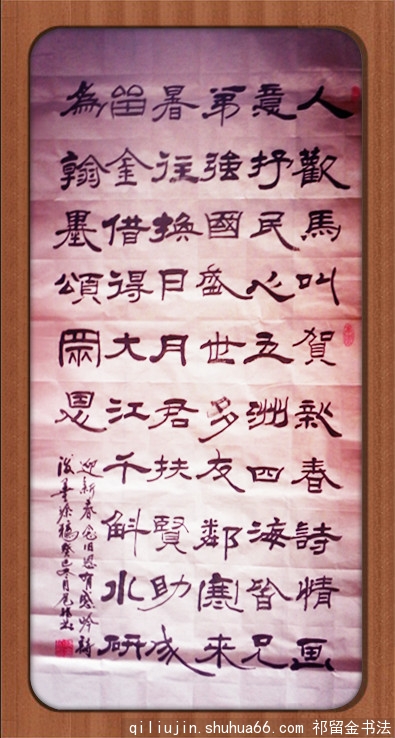 人歡馬叫賀新春詩情画
意抒民心五洲四海皆兄
弟強國盛世多友鄰寒来
暑往換日月君扶賢助成
留金借得大江千斛水研
為翰墨頌恩
迎新春念旧恩有感吟詩
潑墨添福癸巳冬月
qiliujin.shuhua66.com 祁留金书法